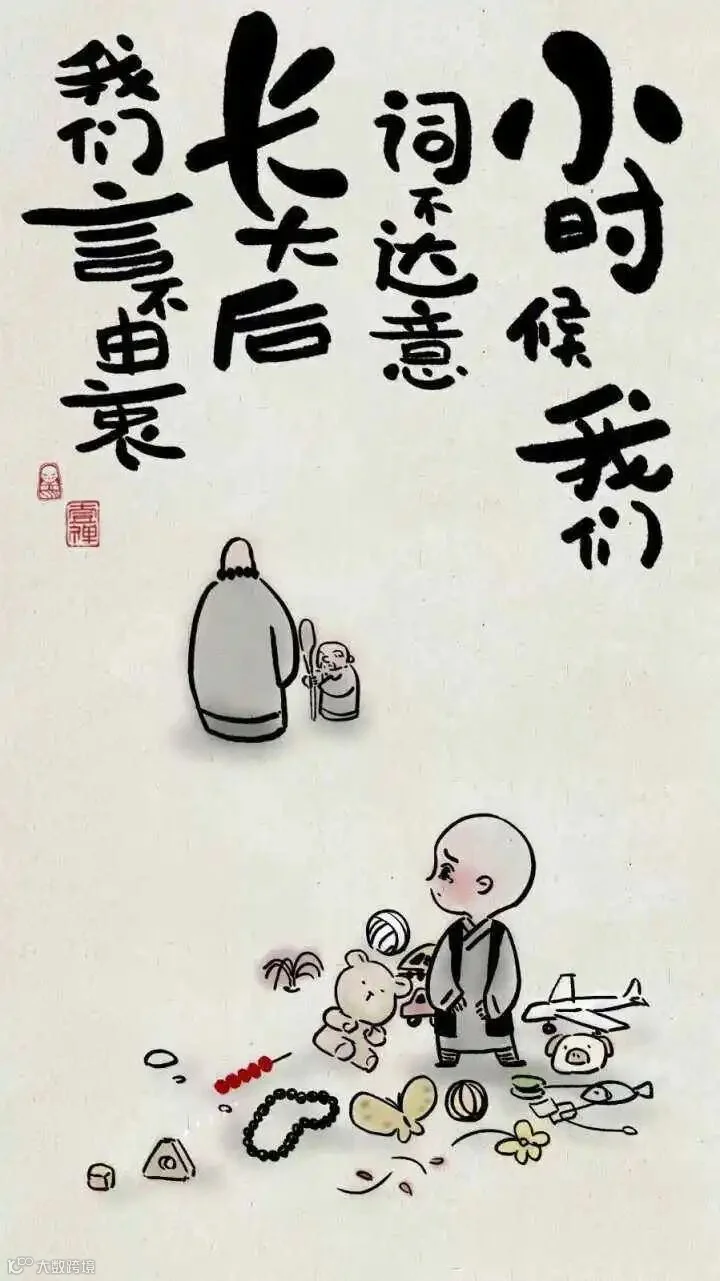 小时候我们
词不达意
长大后
我们言不由衷
壹禅
大数跨境